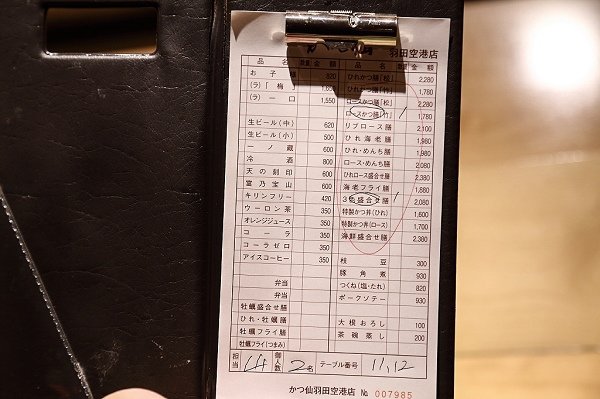 羽田空港店
品 名 数量 金 額 品 名 数量 金 額
お 子 膳 820 ひれかつ膳「松」 2,280
(ラ)「梅」 ひれかつ膳「竹」 1,780
(ラ) 一 口 1,550 ロースかつ膳「松」 2,280
ロースかつ膳「竹」 1 1,780
生ビール(中) 620 リブロース膳 2,100
生ビール(小) 500 ひれ海老膳 1,980
一 ノ 蔵 600 ひれ・めんち膳 1,980
冷 酒 800 ロース・めんち膳 2,080
天 の 刻 印 600 ひれロース盛合せ膳 2,380
富 乃 宝 山 600 海老フライ膳 1,880
キリンフリー 420 3色盛合せ膳 1 2,080
ウーロン茶 350 特製かつ丼(ひれ) 1,600
オレンジジュース 350 特製かつ丼(ロース) 1,700
コーラ 350 海鮮盛合せ膳 2,380
コーラゼロ 350
アイスコーヒー 350 枝 豆 300
豚 角 煮 930
弁当 つくね(塩・たれ) 820
弁当 ポークソテー 930
牡蠣盛合せ膳
ひれ・牡蠣膳 大根おろし 100
牡蠣フライ膳 茶碗蒸し 200
牡蠣フライ(つまみ)
担当 14 個人数 2名 テーブル番号 11,12
かつ仙羽田空港店 № 007985